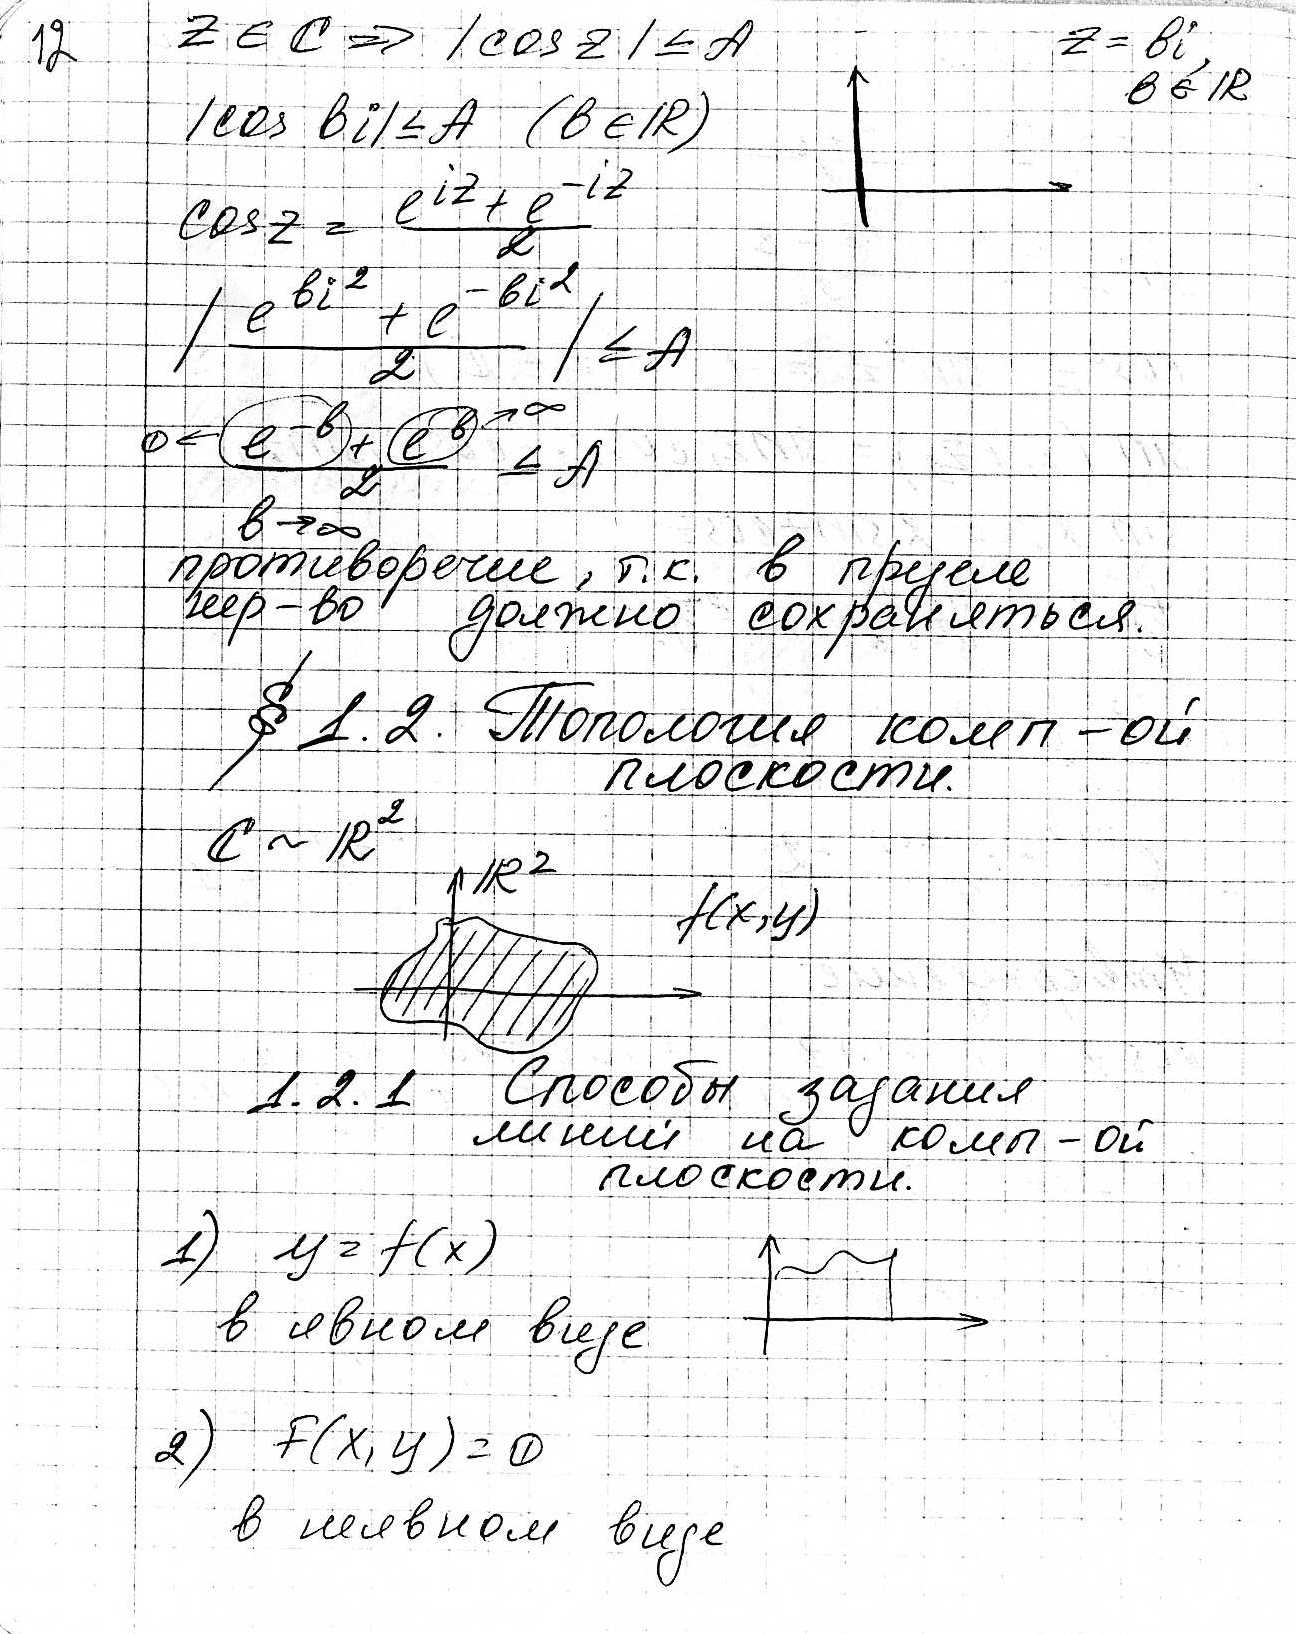 12
z ∈ C ⇒ |cos z| ≤ A
z = bi,
b ∈ IR
|cos bi| ≤ A (b ∈ IR)
cos z = (e^{iz} + e^{-iz})/2
|(e^{bi^2} + e^{-bi^2})/2| ≤ A
0 ← (e^{-b} + e^{b})/2 → ∞ ≤ A
b → ∞
противоречие, т.к. в пределе
нер-во должно сохраняться.
§ 1.2. Топология комп-ой
плоскости.
C ~ IR^2
IR^2
f(x,y)
1.2.1 Способы задания
линий на комп-ой
плоскости.
1) y = f(x)
в явном виде
2) F(x,y) = 0
в неявном виде